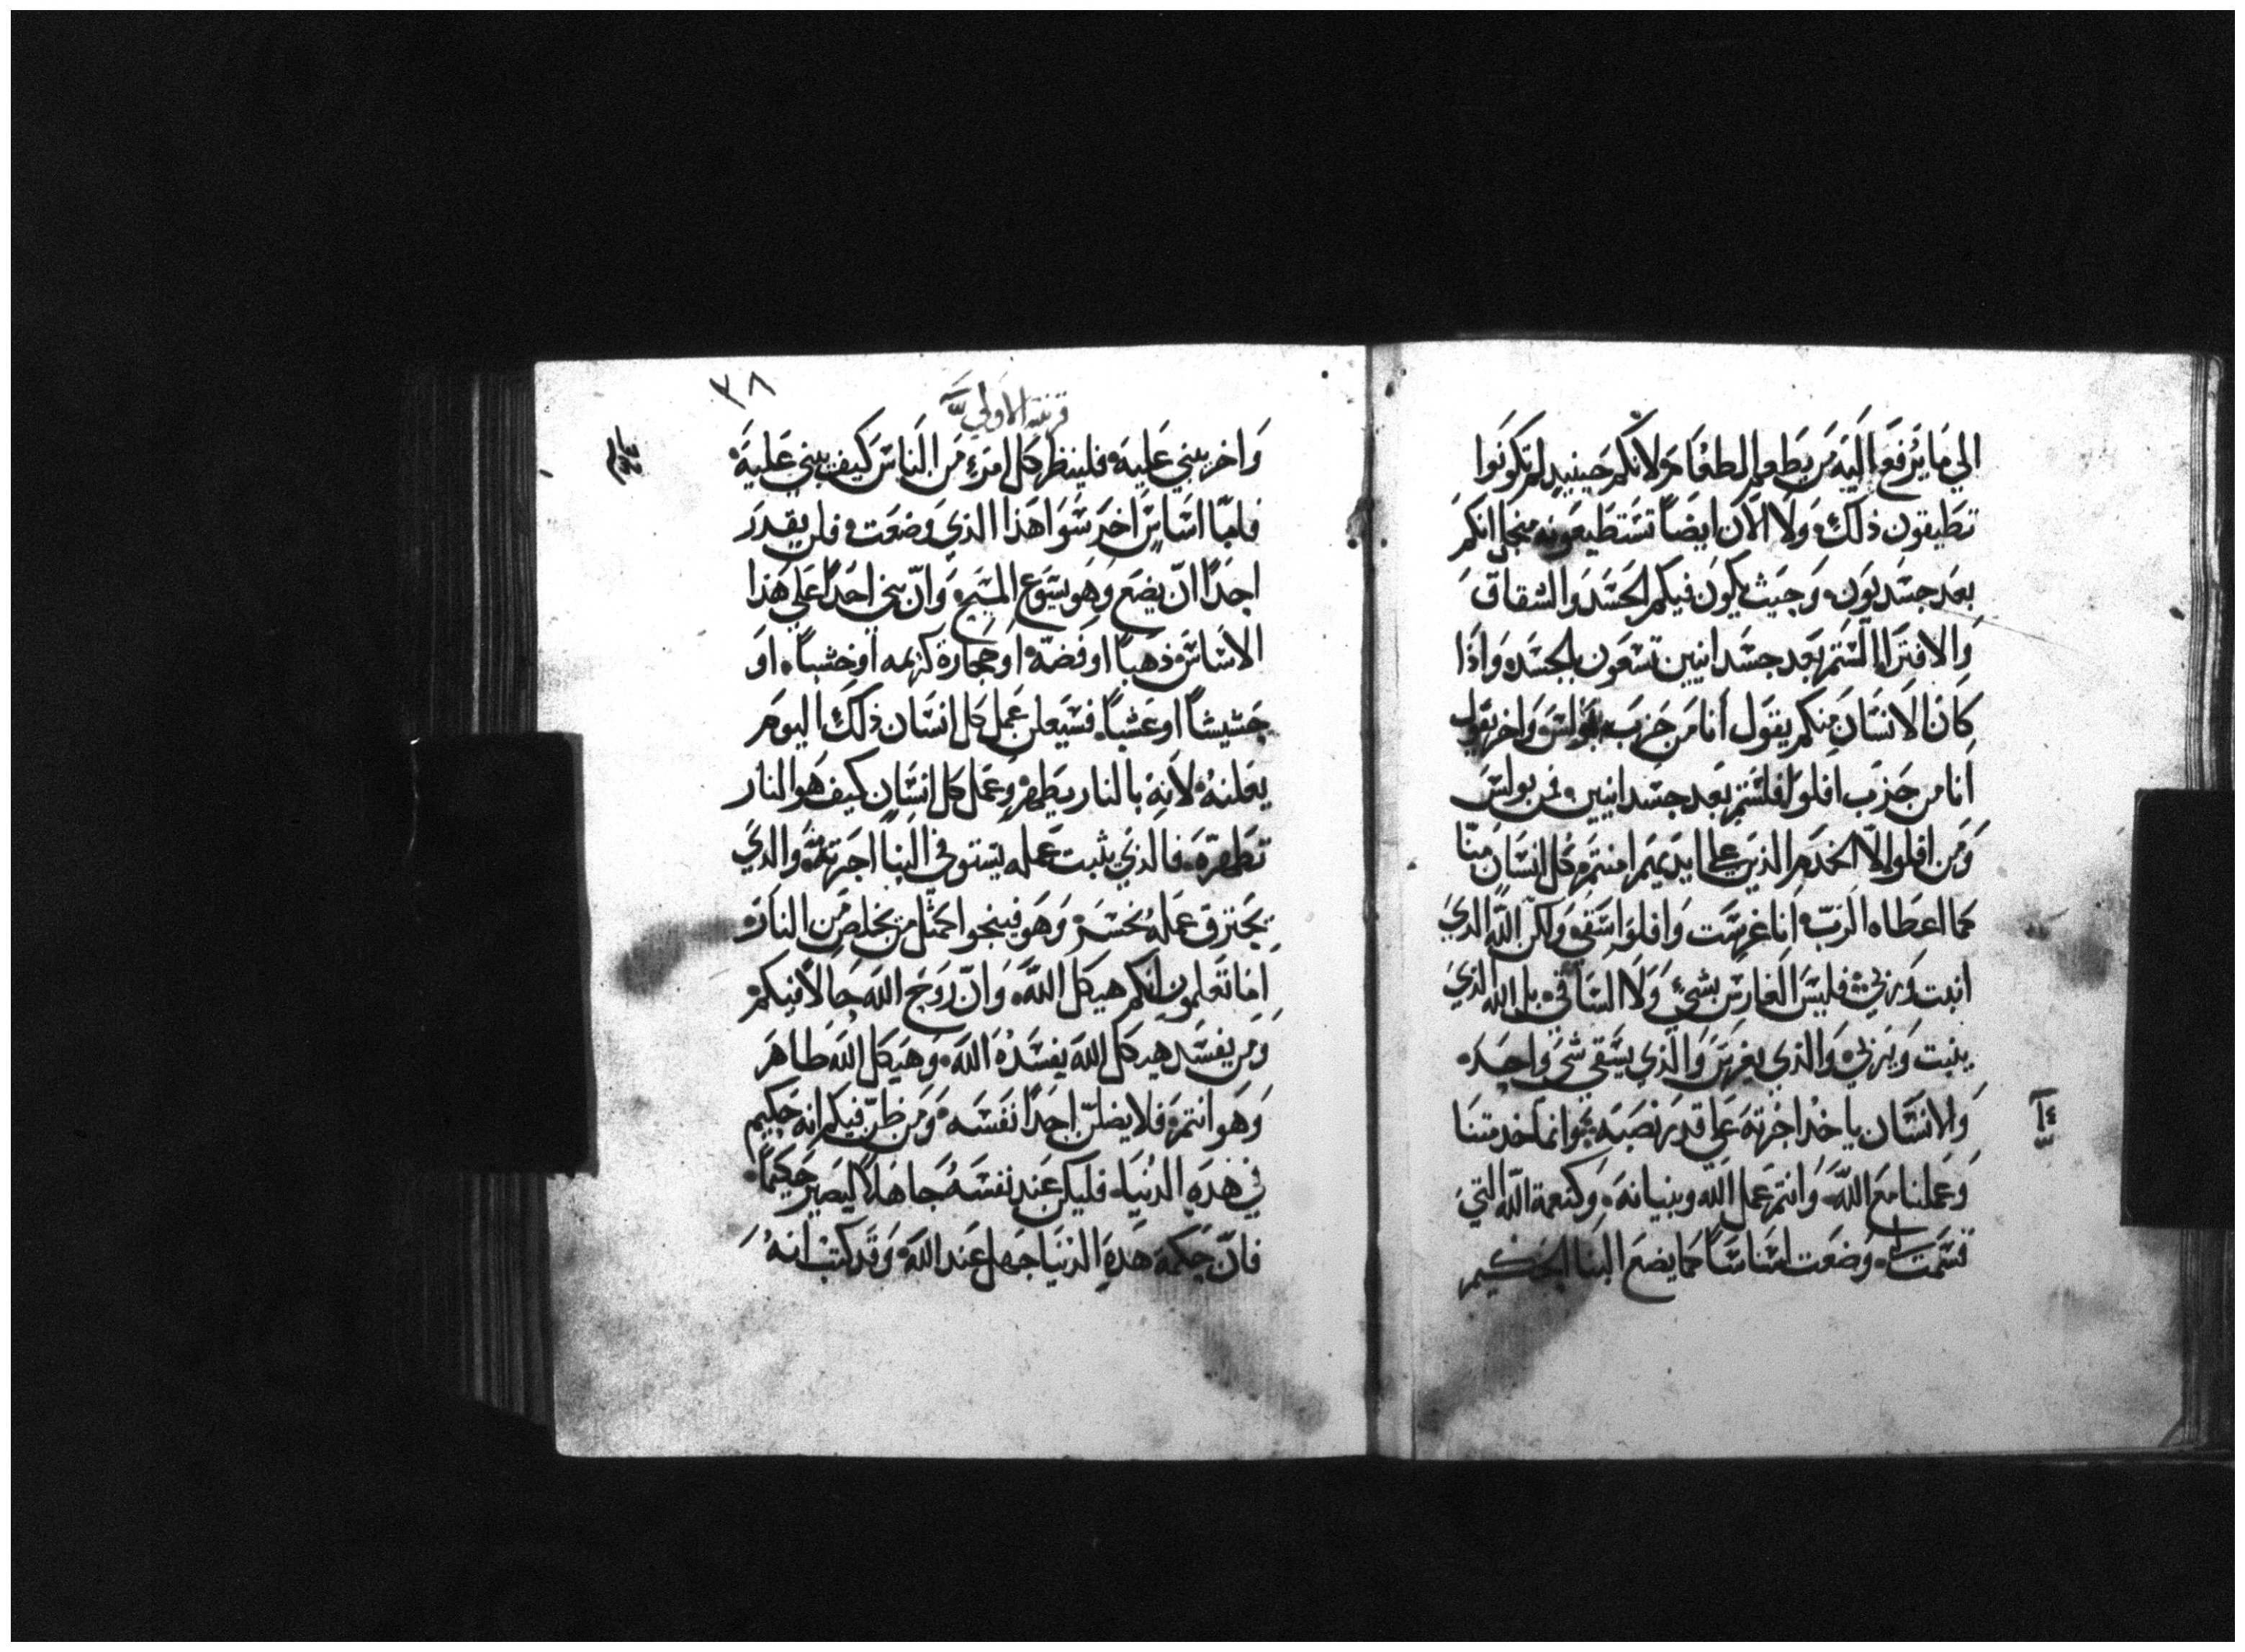 الي ما يرفع اليه من يطعم الطعام ولانكم حينيد لم تكونوا
تطيقون ذلك ولا الان ايضاً تستطيعونه منجل انكم
بعد جسديون وحيث يكون فيكم الحسد والشقاق
والافترا الستم بعد جسدانيين تسعون بالجسد واذا
كان الانسان منكم يقول انا من حزب بولس واخر يقول
انا من حزب افلوا فلستم بعد جسدانيين فمن بولس
ومن افلوا الا الخدم الذين علي ايديهم امنتم وكل انسان منا
كما اعطاه الرب انا غرست وافلوا سقي ولكن الله الذي
انبت وربي فليس الغارس بشي ولا الساقي بل الله الذي
ينبت ويربي والذي يغرس والذي يسقي شي واحد
والانسان ياخذ اجرته علي قدر نصبه وانما خدمتنا
وعملنا مع الله وانتم عمل الله وبنيانه وكنعمة الله التي
قسمت لي وضعت اساساً كما يضع البنا الحكيم
٣٨
قرنتيه الاولي
واخر يبني عليه فلينظر كل امرء من الناس كيف يبني عليه
فاما اساس اخر سوا هذا الذي وضعت فلن يقدر
احداً ان يضع وهو يسوع المسيح وان بني احداً علي هذا
الاساس ذهباً او فضة او حجارة كريمه او خشباً او
حشيشاً او عشباً فسيعلن عمل كل انسان ذلك اليوم
يعلنه لانه بالنار يظهر وعمل كل انسان كيف هو النار
تظهره فالذي يثبت عمله يستوفي البنا اجرته والذي
يحترق عمله يخسر وهو فينجوا كمثل من يخلص من النار
اما تعلمون انكم هيكل الله وان روح الله حالاً فيكم
ومن يفسد هيكل الله يفسده الله وهيكل الله طاهر
وهو انتم فلا يضلن احداً نفسه ومن ظن فيكم انه حكيم
في هذه الدنيا فليكن عند نفسه جاهلاً ليصير حكيماً
فان حكمة هذه الدنيا جهل عند الله وقد كتب انه